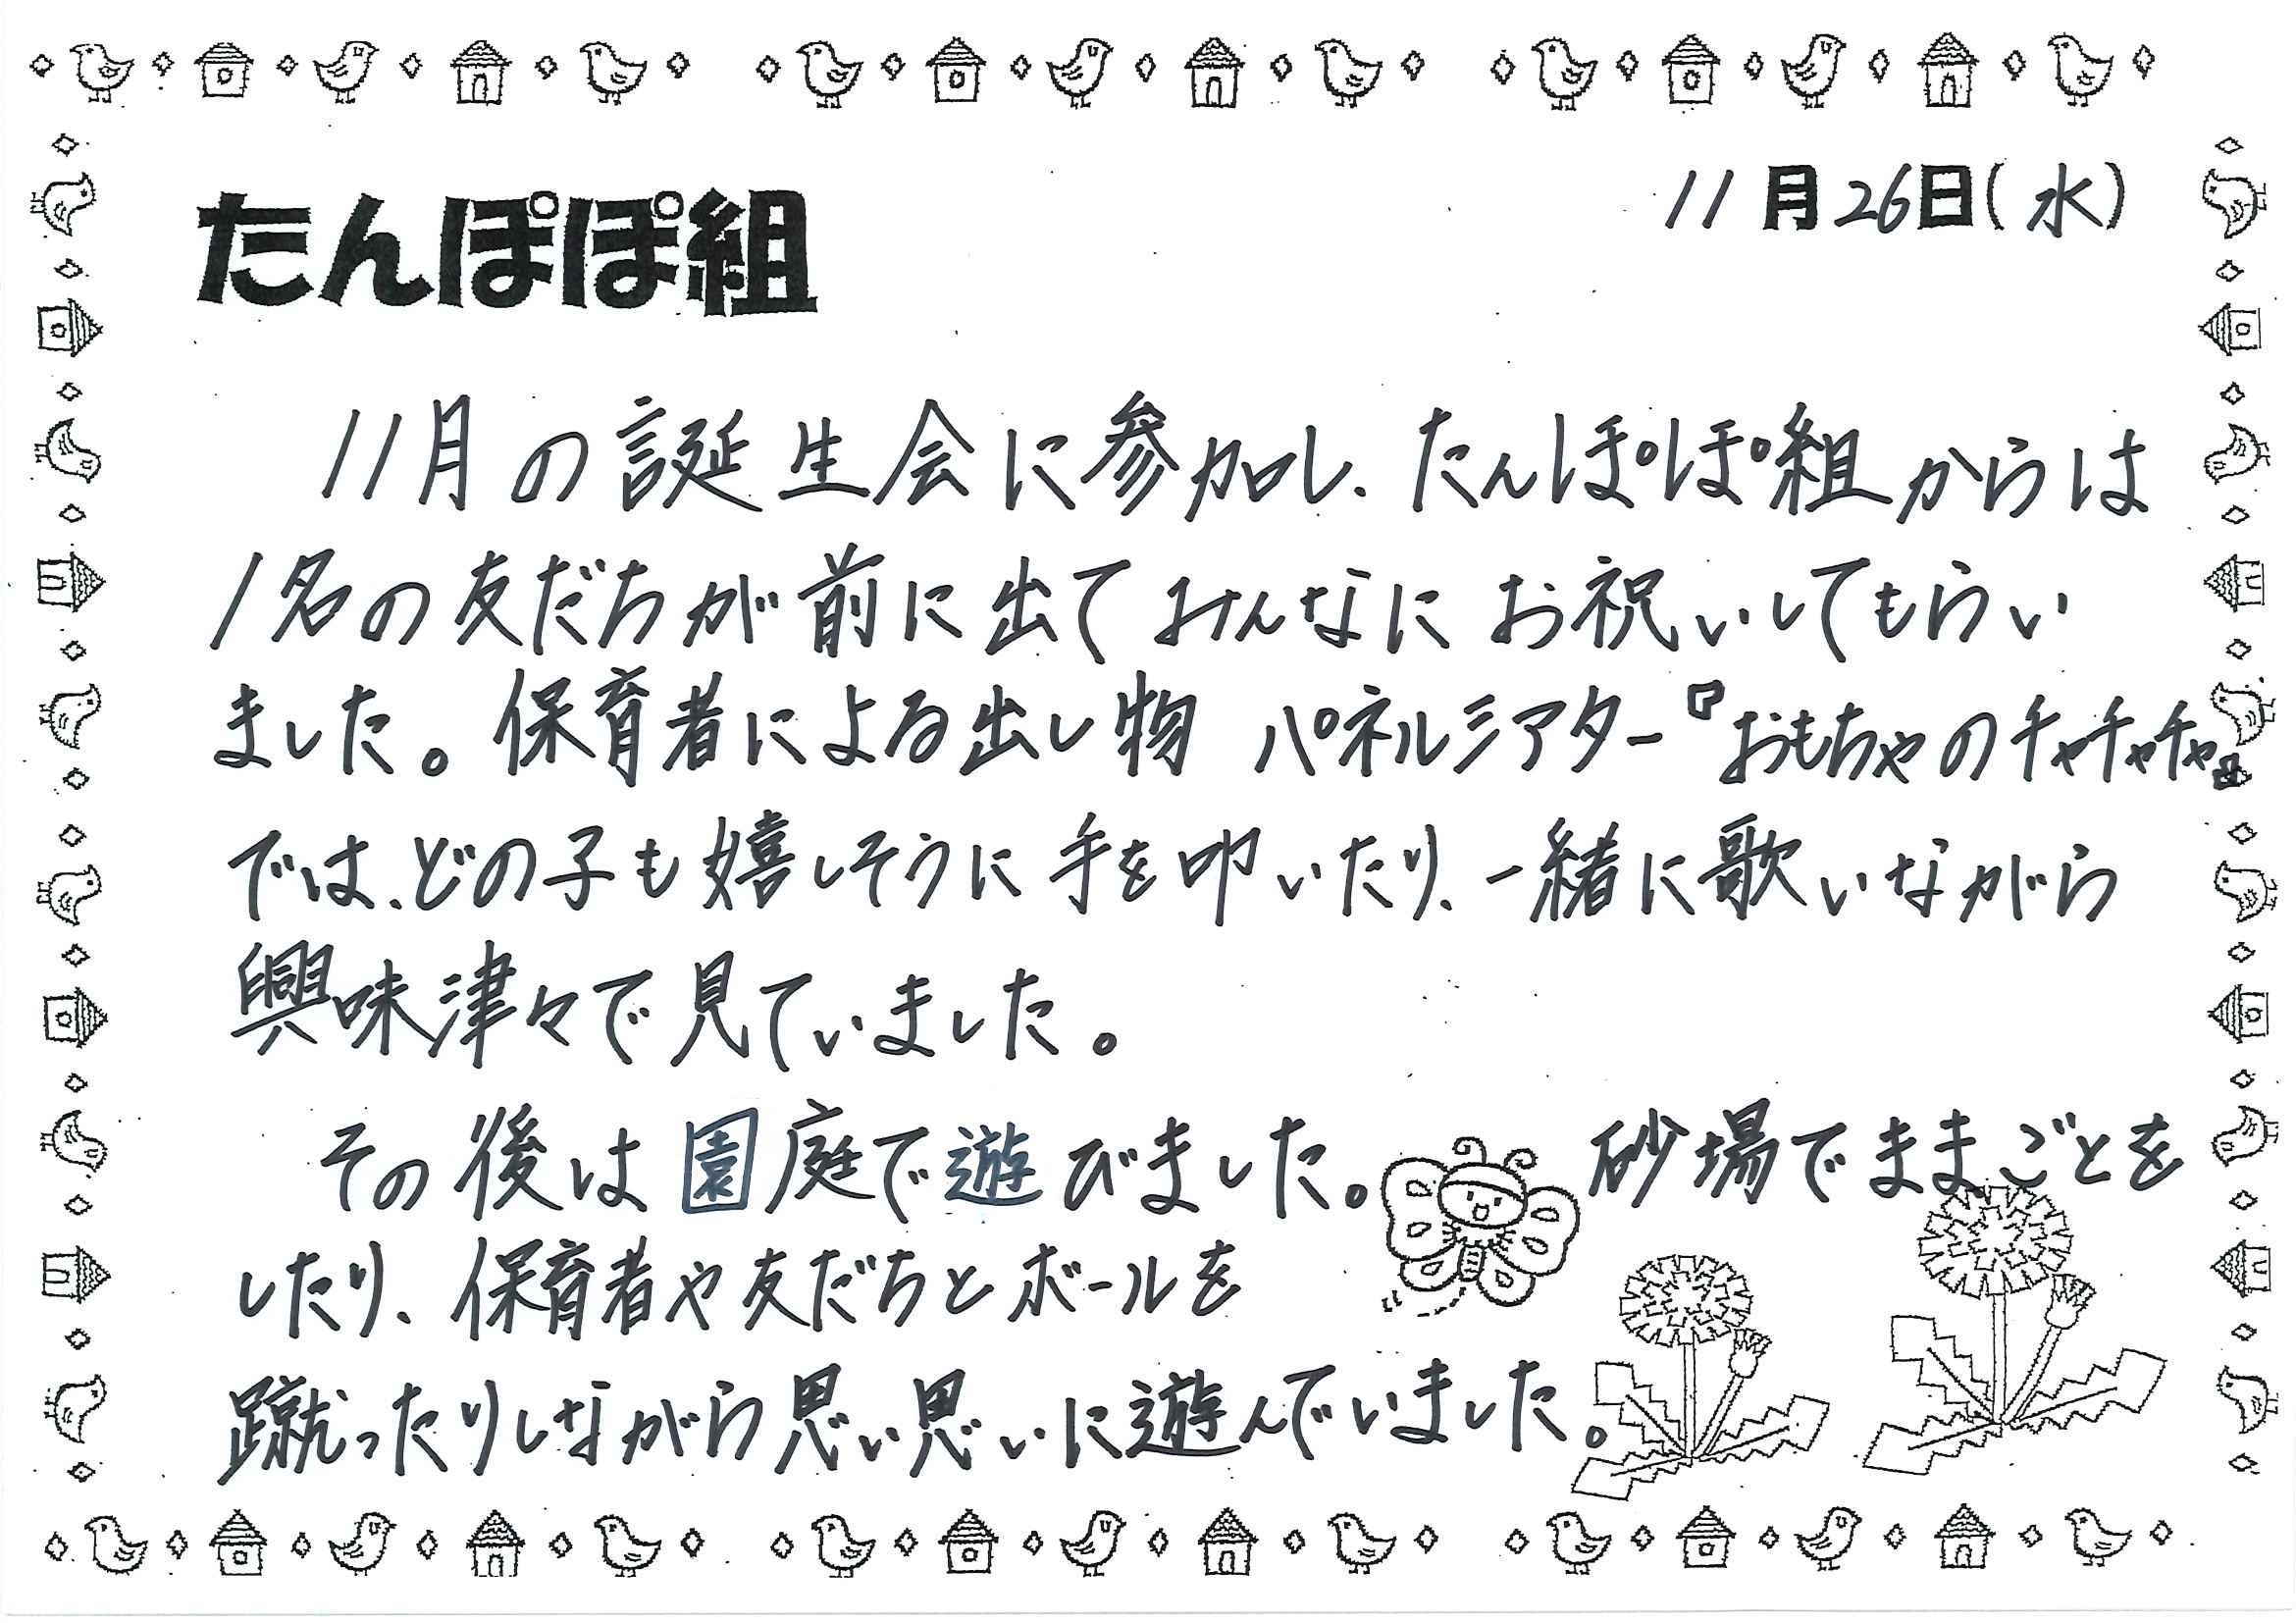 11月26日(水)
たんぽぽ組
11月の誕生会に参加し、たんぽぽ組からは
1名の友だちが前に出てみんなにお祝いしてもらい
ました。保育者による出し物 パネルシアター『おもちゃのチャチャチャ』
では、どの子も嬉しそうに手を叩いたり、一緒に歌いながら
興味津々で見ていました。
その後は園庭で遊びました。砂場でままごとを
したり、保育者や友だちとボールを
蹴ったりしながら思い思いに遊んでいました。